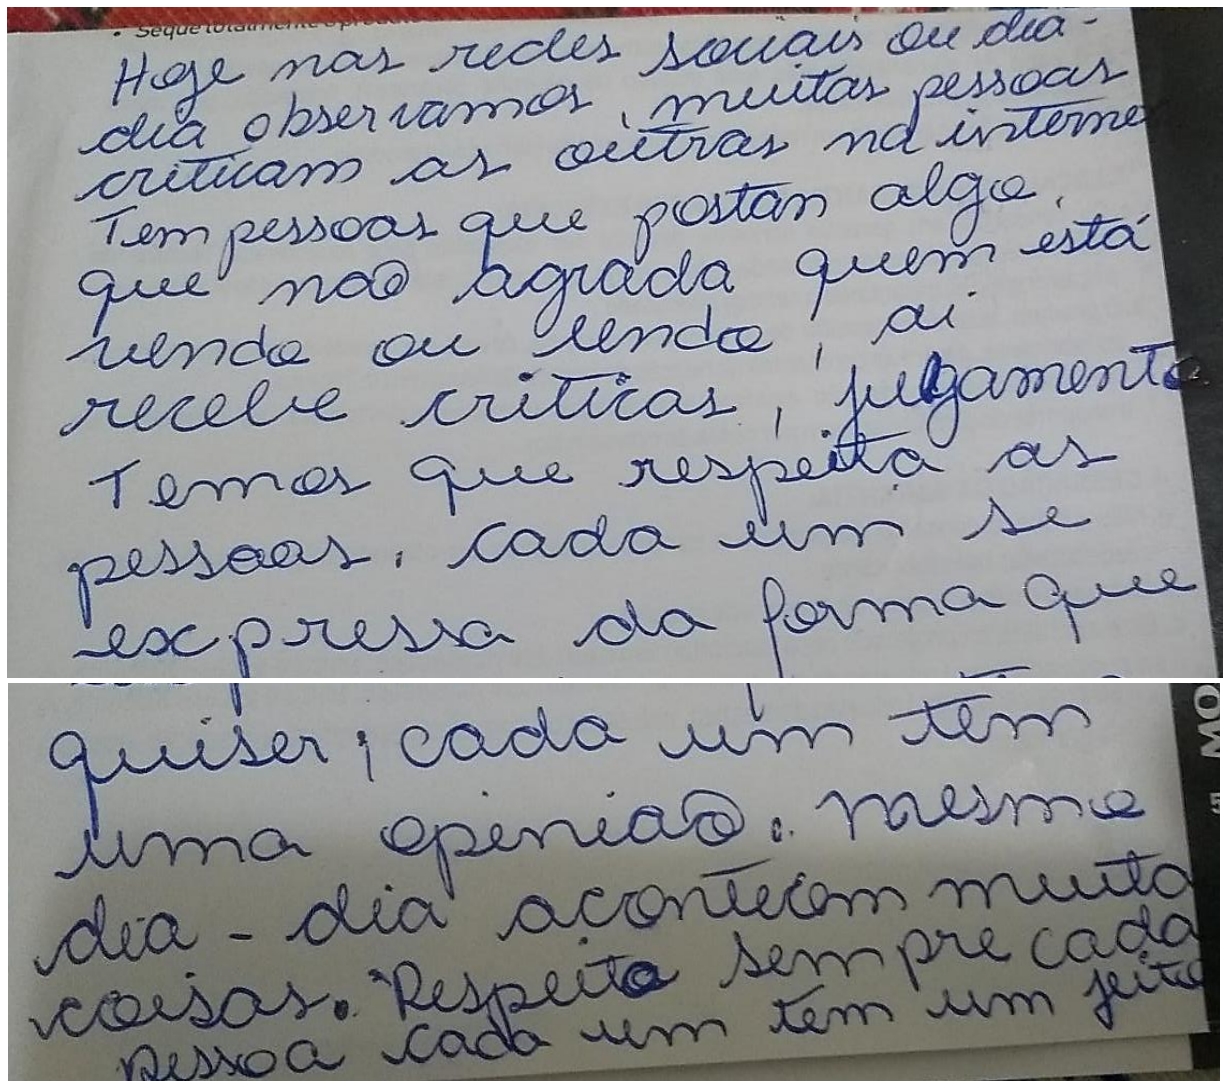 • Seque totalmente o
Hoje nas redes sociais ou dia-
dia observamos, muitas pessoas
criticam as outras na internet
Tem pessoas que postan algo,
que não agrada quem está
vendo ou lendo, ai
recebe criticas, julgamento
Temos que respeita as
pessoas, cada um se
expressa da forma que
quiser, cada um tem
uma openião. mesmo
dia-dia acontecem muita
coisas. Respeito sempre cada
pessoa cada um tem um jeito
MO